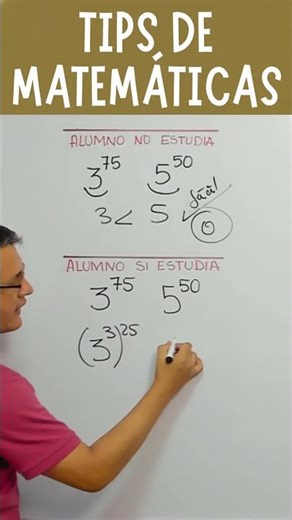 TIPS DE
MATEMÁTICAS
ALUMNO NO ESTUDIA
3^75 5^50
3 < 5 ✓ fácil!
0
ALUMNO SI ESTUDIA
3^75 5^50
(3^3)^25